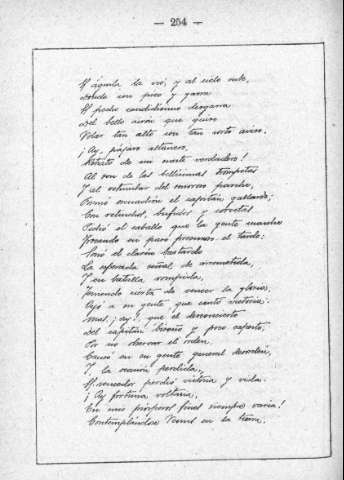 — 254 —
El águila la vió, y al cielo sube,
donde con pico y garra
El pecho candidísimo desgarra
Del bello airón que quiso
Volar tan alto con tan corto aviso.
¡Ay, pájaro altanero,
Retrato de mi suerte verdadero!
Al son de las belísonas trompetas
Y al retumbar del sonoroso parche,
Formó escuadrón el capitán gallardo;
Con relinchos, bufidos y corvetas
Pidió el caballo que la gente marche
Trocando en paso presuroso el tardo:
Sonó el clarín bastardo
La esperada señal de arremetida,
Y en batalla rompida,
Teniendo cierta de vencer la gloria,
Oyó a su gente que cantó victoria:
Mas, ¡ay!, que el desconcierto
Del capitán bisoño y poco experto,
Por no observar el orden,
Causó en su gente general desorden,
Y, la ocasión perdida,
El vencedor perdió victoria y vida.
¡Ay fortuna voltaria,
En mis prósperos fines siempre varia!
Contemplándose
en la tierra,